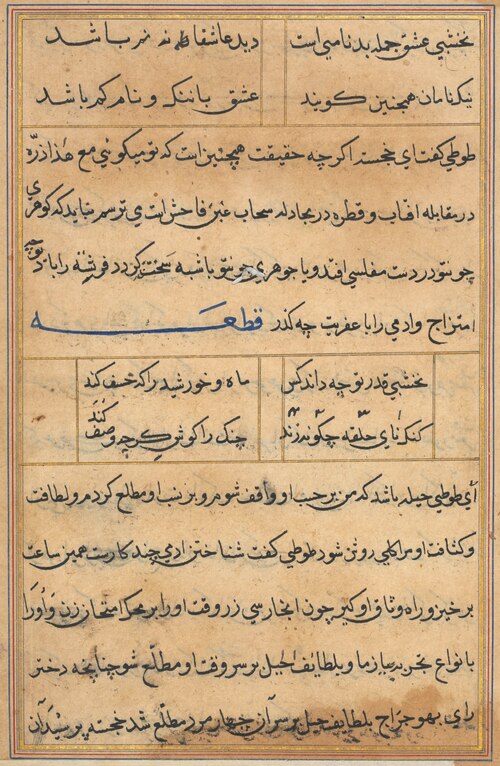 نخشبي عشق جمله بدنامي است دید عاشقا نه تر باشد
نیک نامان همچنین کویند عشق باننک و نام کم باشد
طوطي کفت اي خجسته اکر چه حقیقت همچنین است که تو میکوئي مع هذا ذرّه
در مقابله افتاب و قطره در مجادله سحاب غبن فاحش است مي ترسم نباید که کوهري
چو تو در دست مفلسي افتد و یا جوهري چو تو با شبه سخت کردد فرشته را با دیو چه
امتزاج وادمي را با عفریت چه کذر قطعه
نخشبي قدر تو چه داند کس ماه و خورشید را که خسف کند
کنک نای حلقه چکونه زند چنک را کوش کر چه وصف کند
اي طوطي حیله باشد که من بر حسب او واقف شوم و بر نسب او مطلع کردم و لطافت
و کثافت او مرا کلي روشن شود طوطي کفت شناختن ادمي چند کارست همین ساعت
برخیز و راه وثاق او کیر چون انجا رسي زر وقت او را بر محک امتحان زن و او را
با انواع تجربه بیازما و بلطائف الحیل بر سر وقت او مطلع شو چنانچه دختر
راي بهوجراج بلطایف حیل بر سر آن چهار مرد مطلع شد خجسته پرسید آن